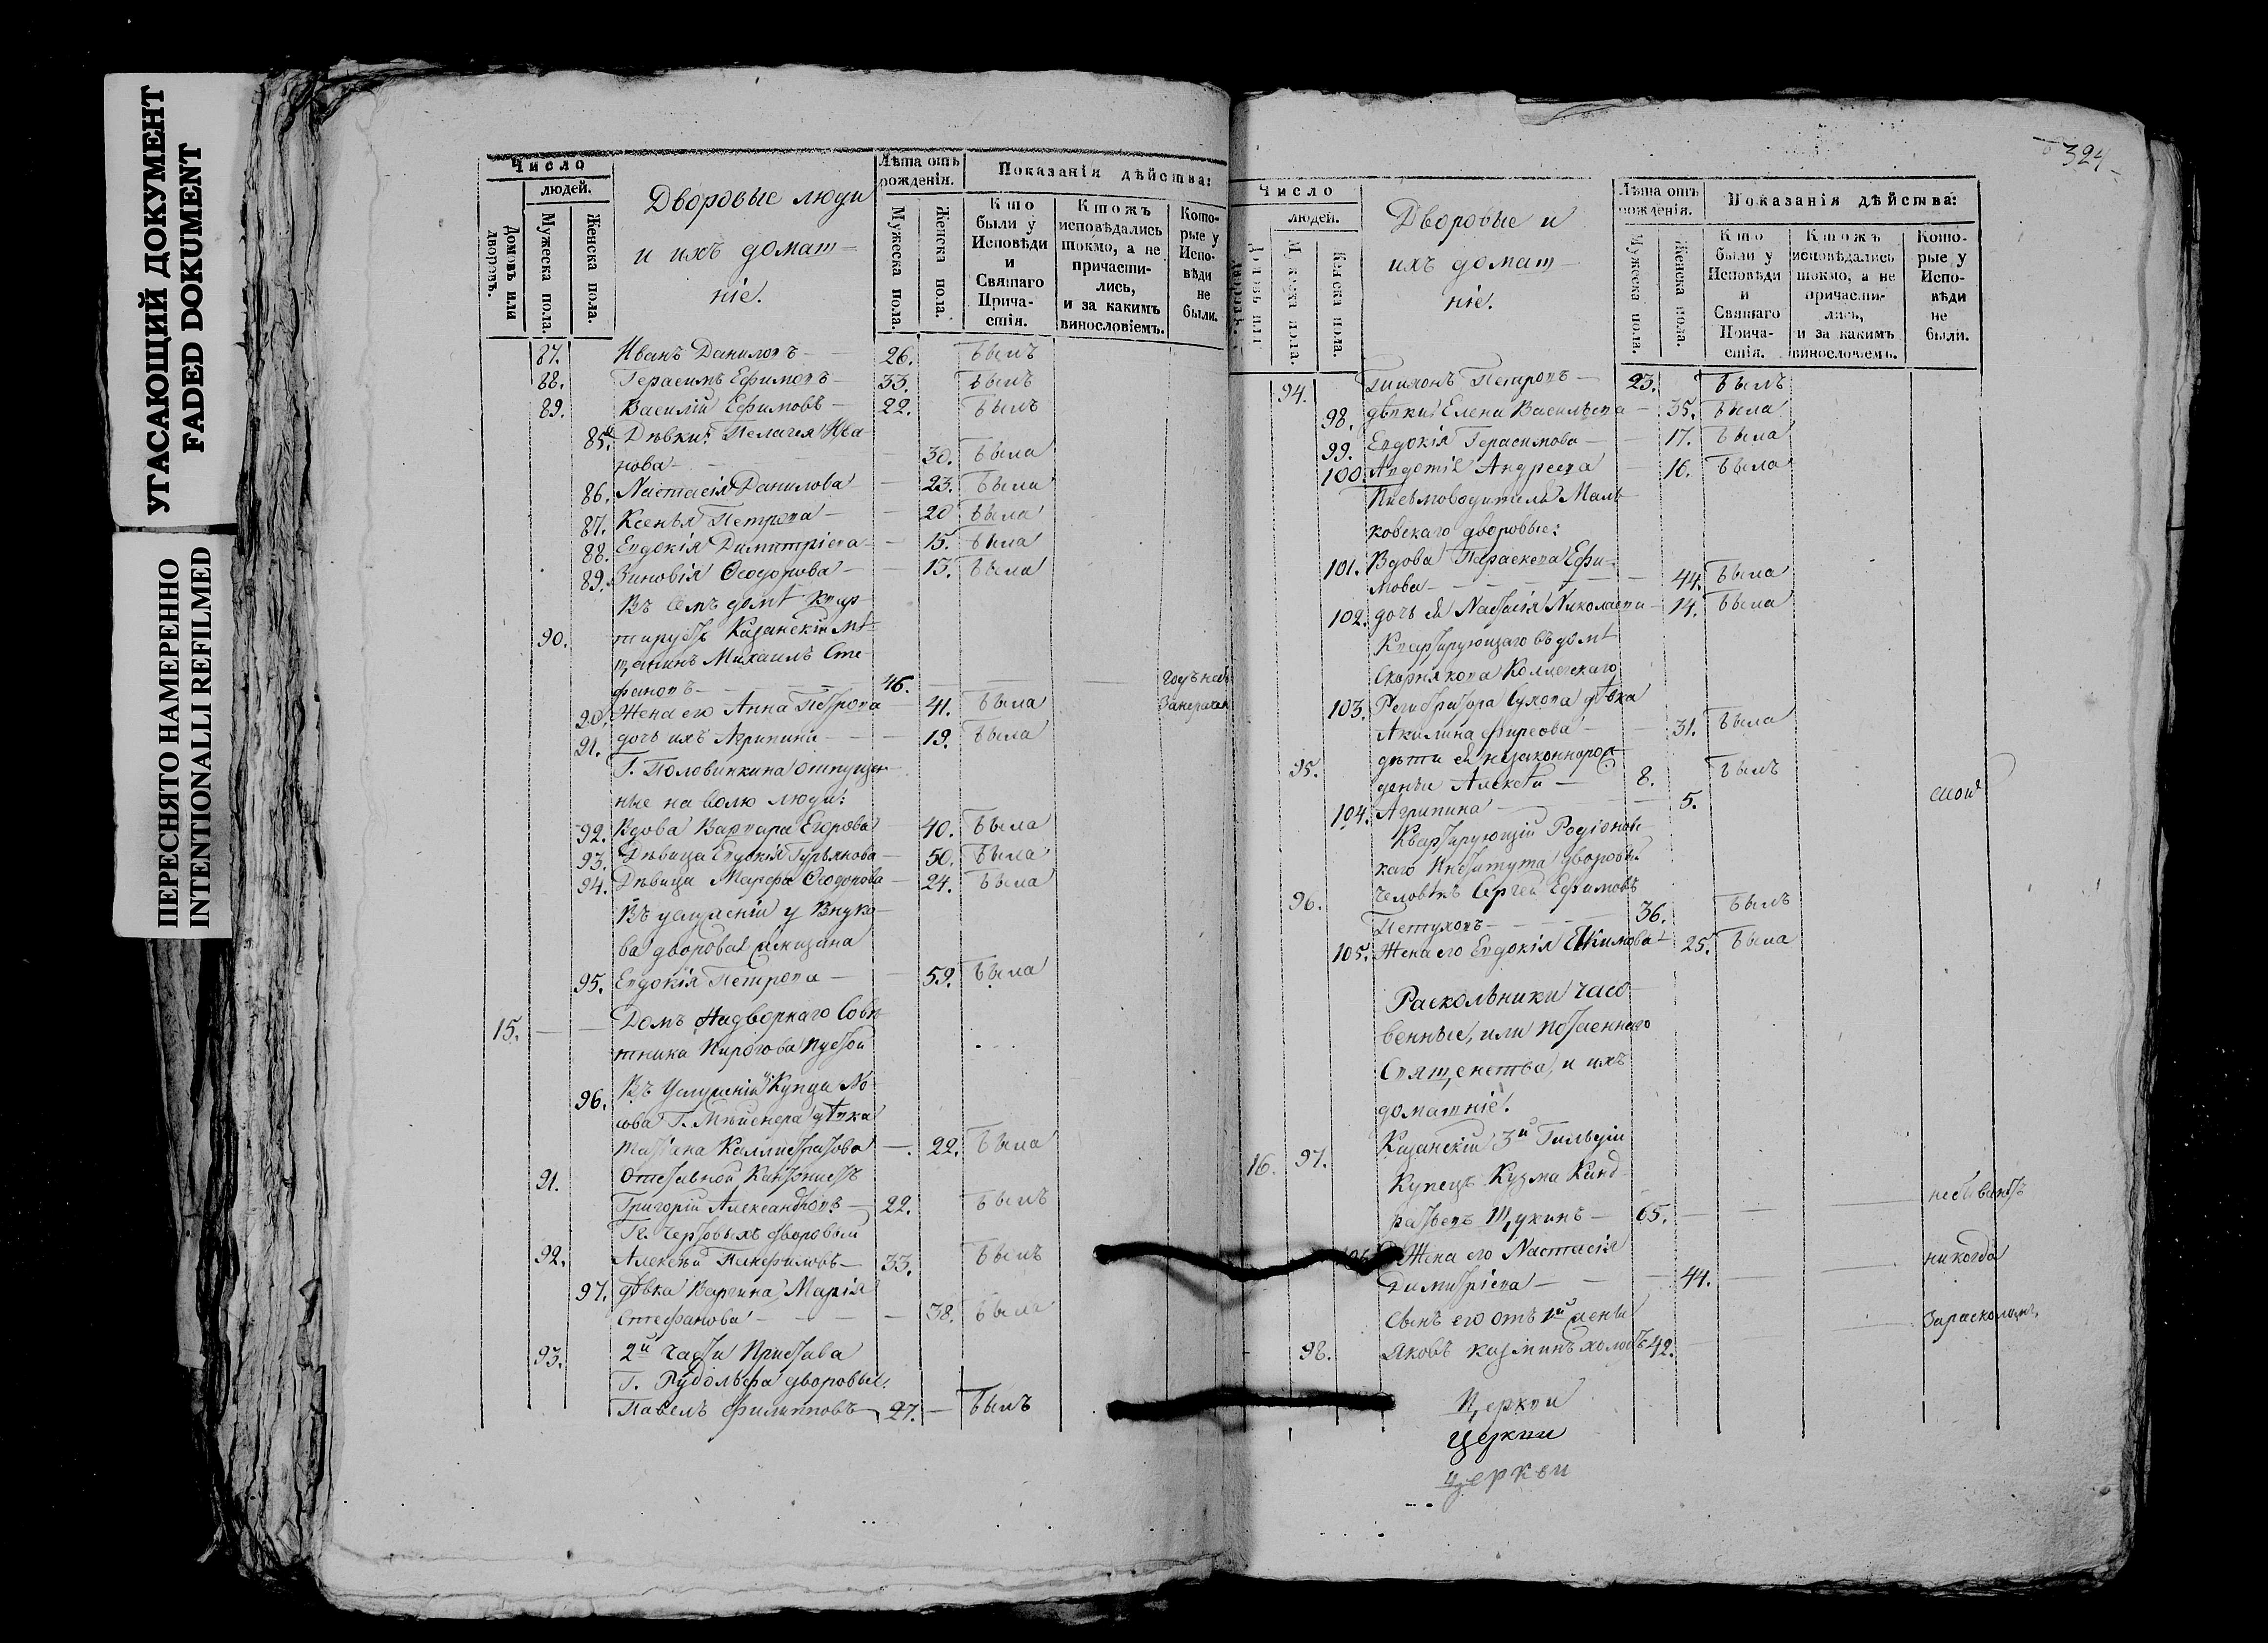 УТАСАЮЩИЙ ДОКУМЕНТ
FADED DOKUMENT
ПЕРЕСНЯТО НАМЕРЕННО
INTENTIONALLI REFILMED
Число
людей.
Домовъ или дворовъ.
Мужеска пола.
Женска пола.
Дворовые люди
и ихъ домаш=
ніе.
Лѣта отъ рожденія.
Мужеска пола.
Женска пола.
Показанія дѣйства:
Кто были у Исповѣди и Святаго Прича-стія.
Ктожъ исповѣдались токмо, а не причасти-лись, и за какимъ винословіемъ.
Кото-рые у Испо-вѣди не были.
87. Иванъ Даниловъ — 26. былъ
88. Герасимъ Ефимовъ — 33. былъ
89. Василій Ефимовъ — 22. былъ
85. Дѣвки: Пелагея Ива
нова — 30. была
86. Настасія Данилова — 23. была
87. Ксенья Петрова — 20 была
88. Евдокія Димитріева — 15. была
89. Зиновія Ѳеодорова — 13. была
Въ семъ домѣ квар
90. тируетъ Казанскій мѣ
щанинъ Михаилъ Сте
фановъ — 46.
90. Жена его Анна Петрова — 41. была
91. дочь ихъ Агрипина — 19. была
Г. Половинкина отпущен
ные на волю люди:
92. Вдова Варвара Егорова — 40. была
93. Дѣвица Евдокія Гурьянова — 50. была
94. Дѣвица Марфа Ѳеодорова — 24. была
Въ услуженіи у Внуко
ва дворовая
95. Евдокія Петрова — 59. была
15. Домъ Надворнаго Совѣ
тника Пирогова пустой
96. Въ услуженіи у Купца Но
сова Г. дѣвка
Татіана Каллистратова — 22. была
91. Отставной Кантонистъ
Григорій Александровъ — 22. былъ
Гг. Чертовыхъ дворовый
92. Алексѣй Панфиловъ — 33. былъ
97. дѣвка Марія
Стефанова — 38. была
93. 2й части Пристава
Г. Рудольфа дворовые:
Павелъ Филипповъ — 27. — былъ
324
Число
людей.
Домовъ или дворовъ.
Мужеска пола.
Женска пола.
Дворовые и
ихъ домаш—
ніе.
Лѣта отъ рожденія.
Мужеска пола.
Женска пола.
Показанія дѣйства:
Кто были у Исповѣди и Святаго Прича-стія.
Ктожъ исповѣдались токмо, а не причасти-лись, и за какимъ винословіемъ.
Кото-рые у Испо-вѣди не были.
94. Тихонъ Петровъ — 23. былъ
98. дѣвки: Елена Васильева — 35. была
99. Евдокія Герасимова — 17. была
100. Авдотія Андреева — 16. была
Письмоводителя Маль
ковскаго дворовые:
101. Вдова Параскева Ефи=
мова — 44. была
102. дочь ея Настасія Николаева — 14. была
Квартирующаго въ домѣ
Скорнякова Коллежскаго
103. Регистратора Сухова дѣвка
Акилина Фирсова — 31. была
95. дѣти ея незаконнорож
денные Алексѣй — 8. былъ
104. Агрипина — 5.
Квартирующій Родіонов
скаго Института дворов.
96. человѣкъ Сергей Ефимовъ
Петуховъ — 36. былъ
105. Жена его Евдокія — 25. была
Раскольники часо
венные, или потаеннаго
Священства, и ихъ
домашніе.
16. 97. Казанскій 3й Гильдіи
Купецъ Кузма Конд
ратьевъ Щукинъ — 65. — небываетъ
106. Жена его Настасія никогда
Димитріева — 44.
Сынъ его отъ 1й жены за расколомъ
98. Яковъ Казминъ холостъ 42.
Церкви
Церкви
церкви